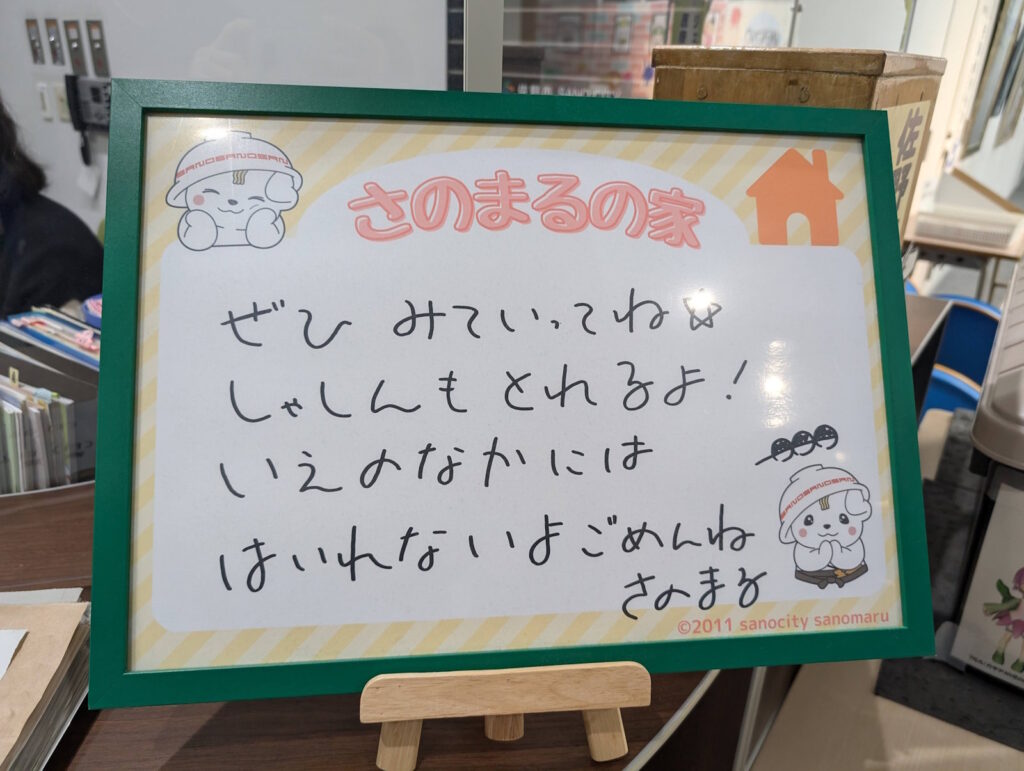 さのまるの家
ぜひ みていってね☆
しゃしんも とれるよ!
いえのなかには
はいれないよ ごめんね
さのまる
©2011 sanocity sanomaru
SANOSANOSAN
SANOSANOSAN
佐野